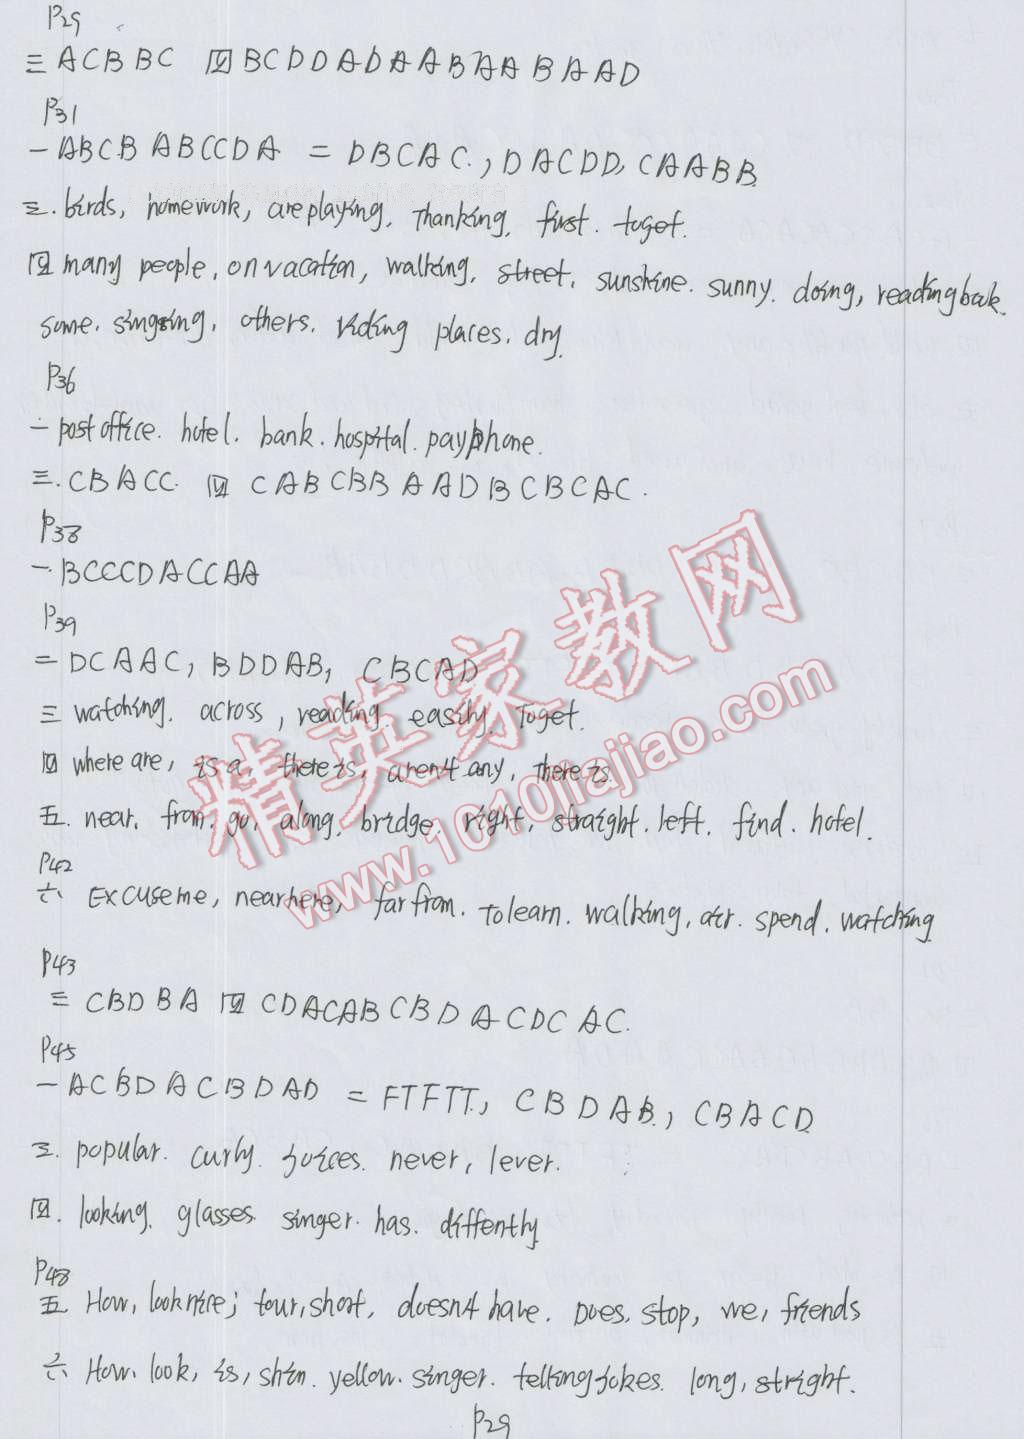 P29
三 ACBBC 四 BCDDADAABAABAAD
P31
一 ABCBABCCDA 二 DBCAC., DACDD, CAABB.
三. birds, homework, are playing, Thanking, first. to get.
四 many people, on vacation, walking, street, sunshine. sunny. doing, reading book.
some. singing, others. riding places. dry.
P36
一 post office. hotel. bank. hospital. pay phone.
三. CBACC. 四 CABCBBAADBCBCAC.
P38
一 BCCCDACCAA
P39
二 DCAAC, BDDAB, CBCAD
三 watching. across, reading. easily. To get.
四 where are, is a, there is, aren't any, there is.
五. near. from. go, along. bridge. right, straight. left. find. hotel.
P42
六 Excuse me, near here, far from. to learn. walking, air. spend. watching
P43
三 CBDBA 四 CDACABCBDACDCAC.
P45
一 ACBDACBDAD 二 FTFTT, CBDAB., CBACD
三. popular. curly. juices. never, lever.
四. looking. glasses. singer. has. diffently
P48
五 How, look nice; tour, short, doesn't have. Does, stop, we, friends
六 How, look, is, shin. yellow. singer. telling jokes. long, stright.
P29
精英家教网
www.1010jiajiao.com